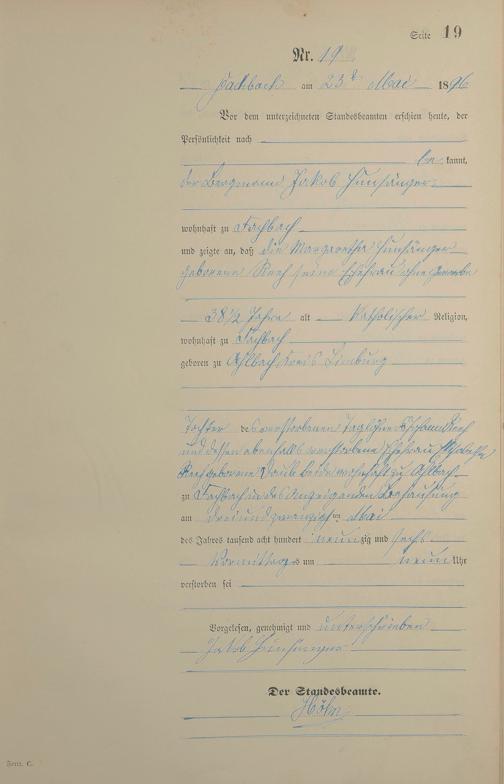 Seite 19
Nr. 19
Fachbach am 23t Mai 1896
Vor dem unterzeichneten Standesbeamten erschien heute, der
Persönlichkeit nach
be kannt,
der Bergmann Jakob
wohnhaft zu Fachbach
und zeigte an, daß die Margaretha
geborene Rech seine Ehefrau ohne Gewerbe
38 1/2 Jahre alt Katholischer Religion,
wohnhaft zu Fachbach
geboren zu Ahlbach Kreis Limburg
Tochter des verstorbenen Taglöhners Johann Rech
und dessen ebenfalls verstorbene Ehefrau
Rech geborene Daub beide wohnhaft zu Ahlbach
zu Fachbach in des Anzeigenden Behausung
am dreiundzwanzigsten Mai
des Jahres tausend acht hundert neunzig und sechs
Vormittags um neun Uhr
verstorben sei
Vorgelesen, genehmigt und unterschrieben
Jakob
Der Standesbeamte.
Höhn
Form. C.